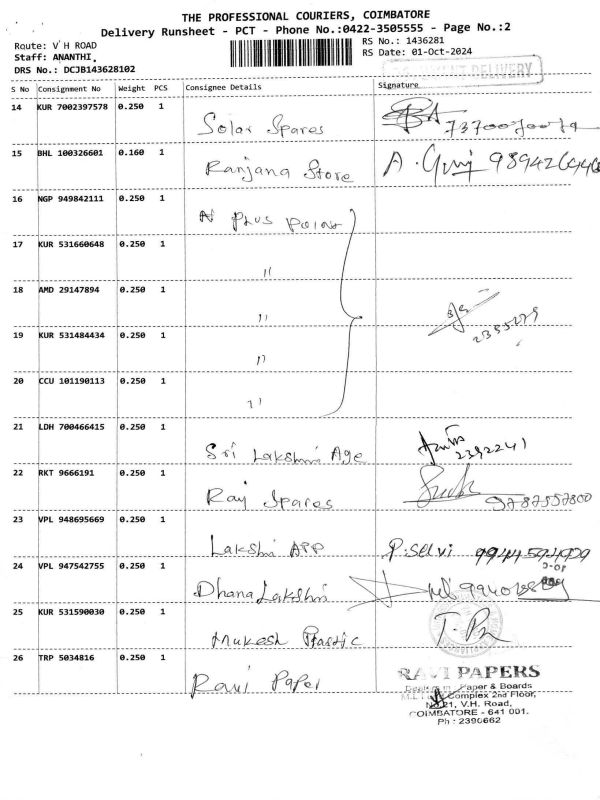 THE PROFESSIONAL COURIERS, COIMBATORE
Delivery Runsheet - PCT - Phone No.:0422-3505555 - Page No.:2
Route: V H ROAD
RS No.: 1436281
Staff: ANANTHI.
RS Date: 01-Oct-2024
DRS No.: DCJB143628102
DELIVERY
S No Consignment No Weight PCS Consignee Details Signature
14 KUR 7002397578 0.250 1 Solar Spares
15 BHL 100326601 0.160 1 Ranjana Store A.
16 NGP 949842111 0.250 1 N Plus Point
17 KUR 531660648 0.250 1 "
18 AMD 29147894 0.250 1 "
19 KUR 531484434 0.250 1 "
20 CCU 101190113 0.250 1 "
21 LDH 700466415 0.250 1 Sri Lakshmi Age 2392241
22 RKT 9666191 0.250 1 Raj Spares
23 VPL 948695669 0.250 1 Lakshi APP P.Selvi
24 VPL 947542755 0.250 1 Dhana Lakshmi
25 KUR 531590030 0.250 1 Mukesh Plastic
26 TRP 5034816 0.250 1 Ravi Paper
RAVI PAPERS
Paper & Boards
Complex 2nd Floor,
V.H. Road,
COIMBATORE - 641 001.
Ph : 2390662